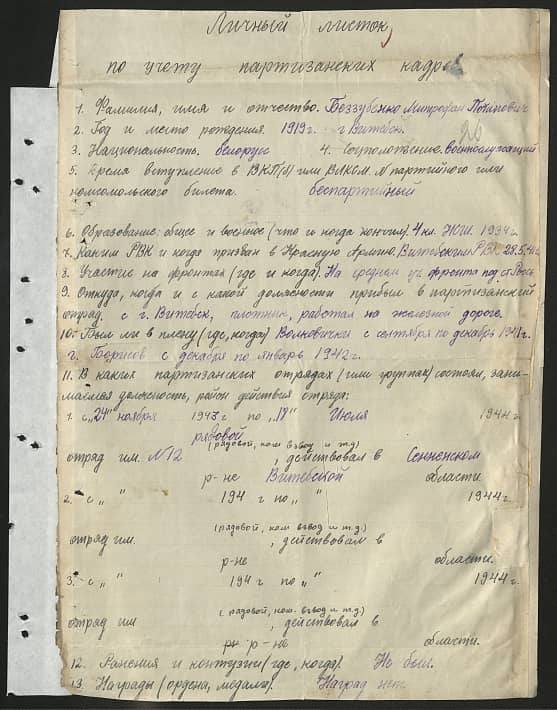 Личный листок
по учету партизанских кадров
26
1. Фамилия, имя и отчество. Беззубенко Митрофан Потапович
2. Год и место рождения. 1919 г. г Витебск.
3. Национальность. белорус 4. Соцположение. Военнослужащий
5. Время вступления в ВКП(б) или ВЛКСМ N партийного или
комсомольского билета. беспартийный
6. Образование: общее и военное (что и когда кончил). 4 кл. 1934 г.
7. Каким РВК и когда призван в Красную Армию. Витебским РВК 28.5.41 г.
8. Участие на фронтах (где и когда). На среднем уч фронта под ст.
9. Откуда, когда и с какой должности прибыл в партизанский
отряд. с г. Витебск, плотник, работал на железной дороге.
10. Был ли в плену (где, когда) Волковички с сентября по декабрь 1941 г.
г. Борисов с декабря по январь 1942 г.
11. В каких партизанских отрядах (или группах) состоял, зани-
маемая должность, район действия отряда:
1. с „24" ноября 1943 г по „18" Июля 1944 г
рядовой
(рядовой, ком. взвод и т.д.)
отряд им. N 12 , действовал в Сенненском
р-не Витебской области
2. с „ " 194 г по „ " 1944 г.
(рядовой, ком взвод и т.д.)
отряд им. , действовал в
р-не области.
3. с „ " 194 г по „ " 1944 г.
(рядовой, ком. взвод и т.д.)
отряд им , действовал в
р-не области.
12. Ранения и контузии (где, когда). Не был.
13. Награды (ордена, медали). Наград нет.